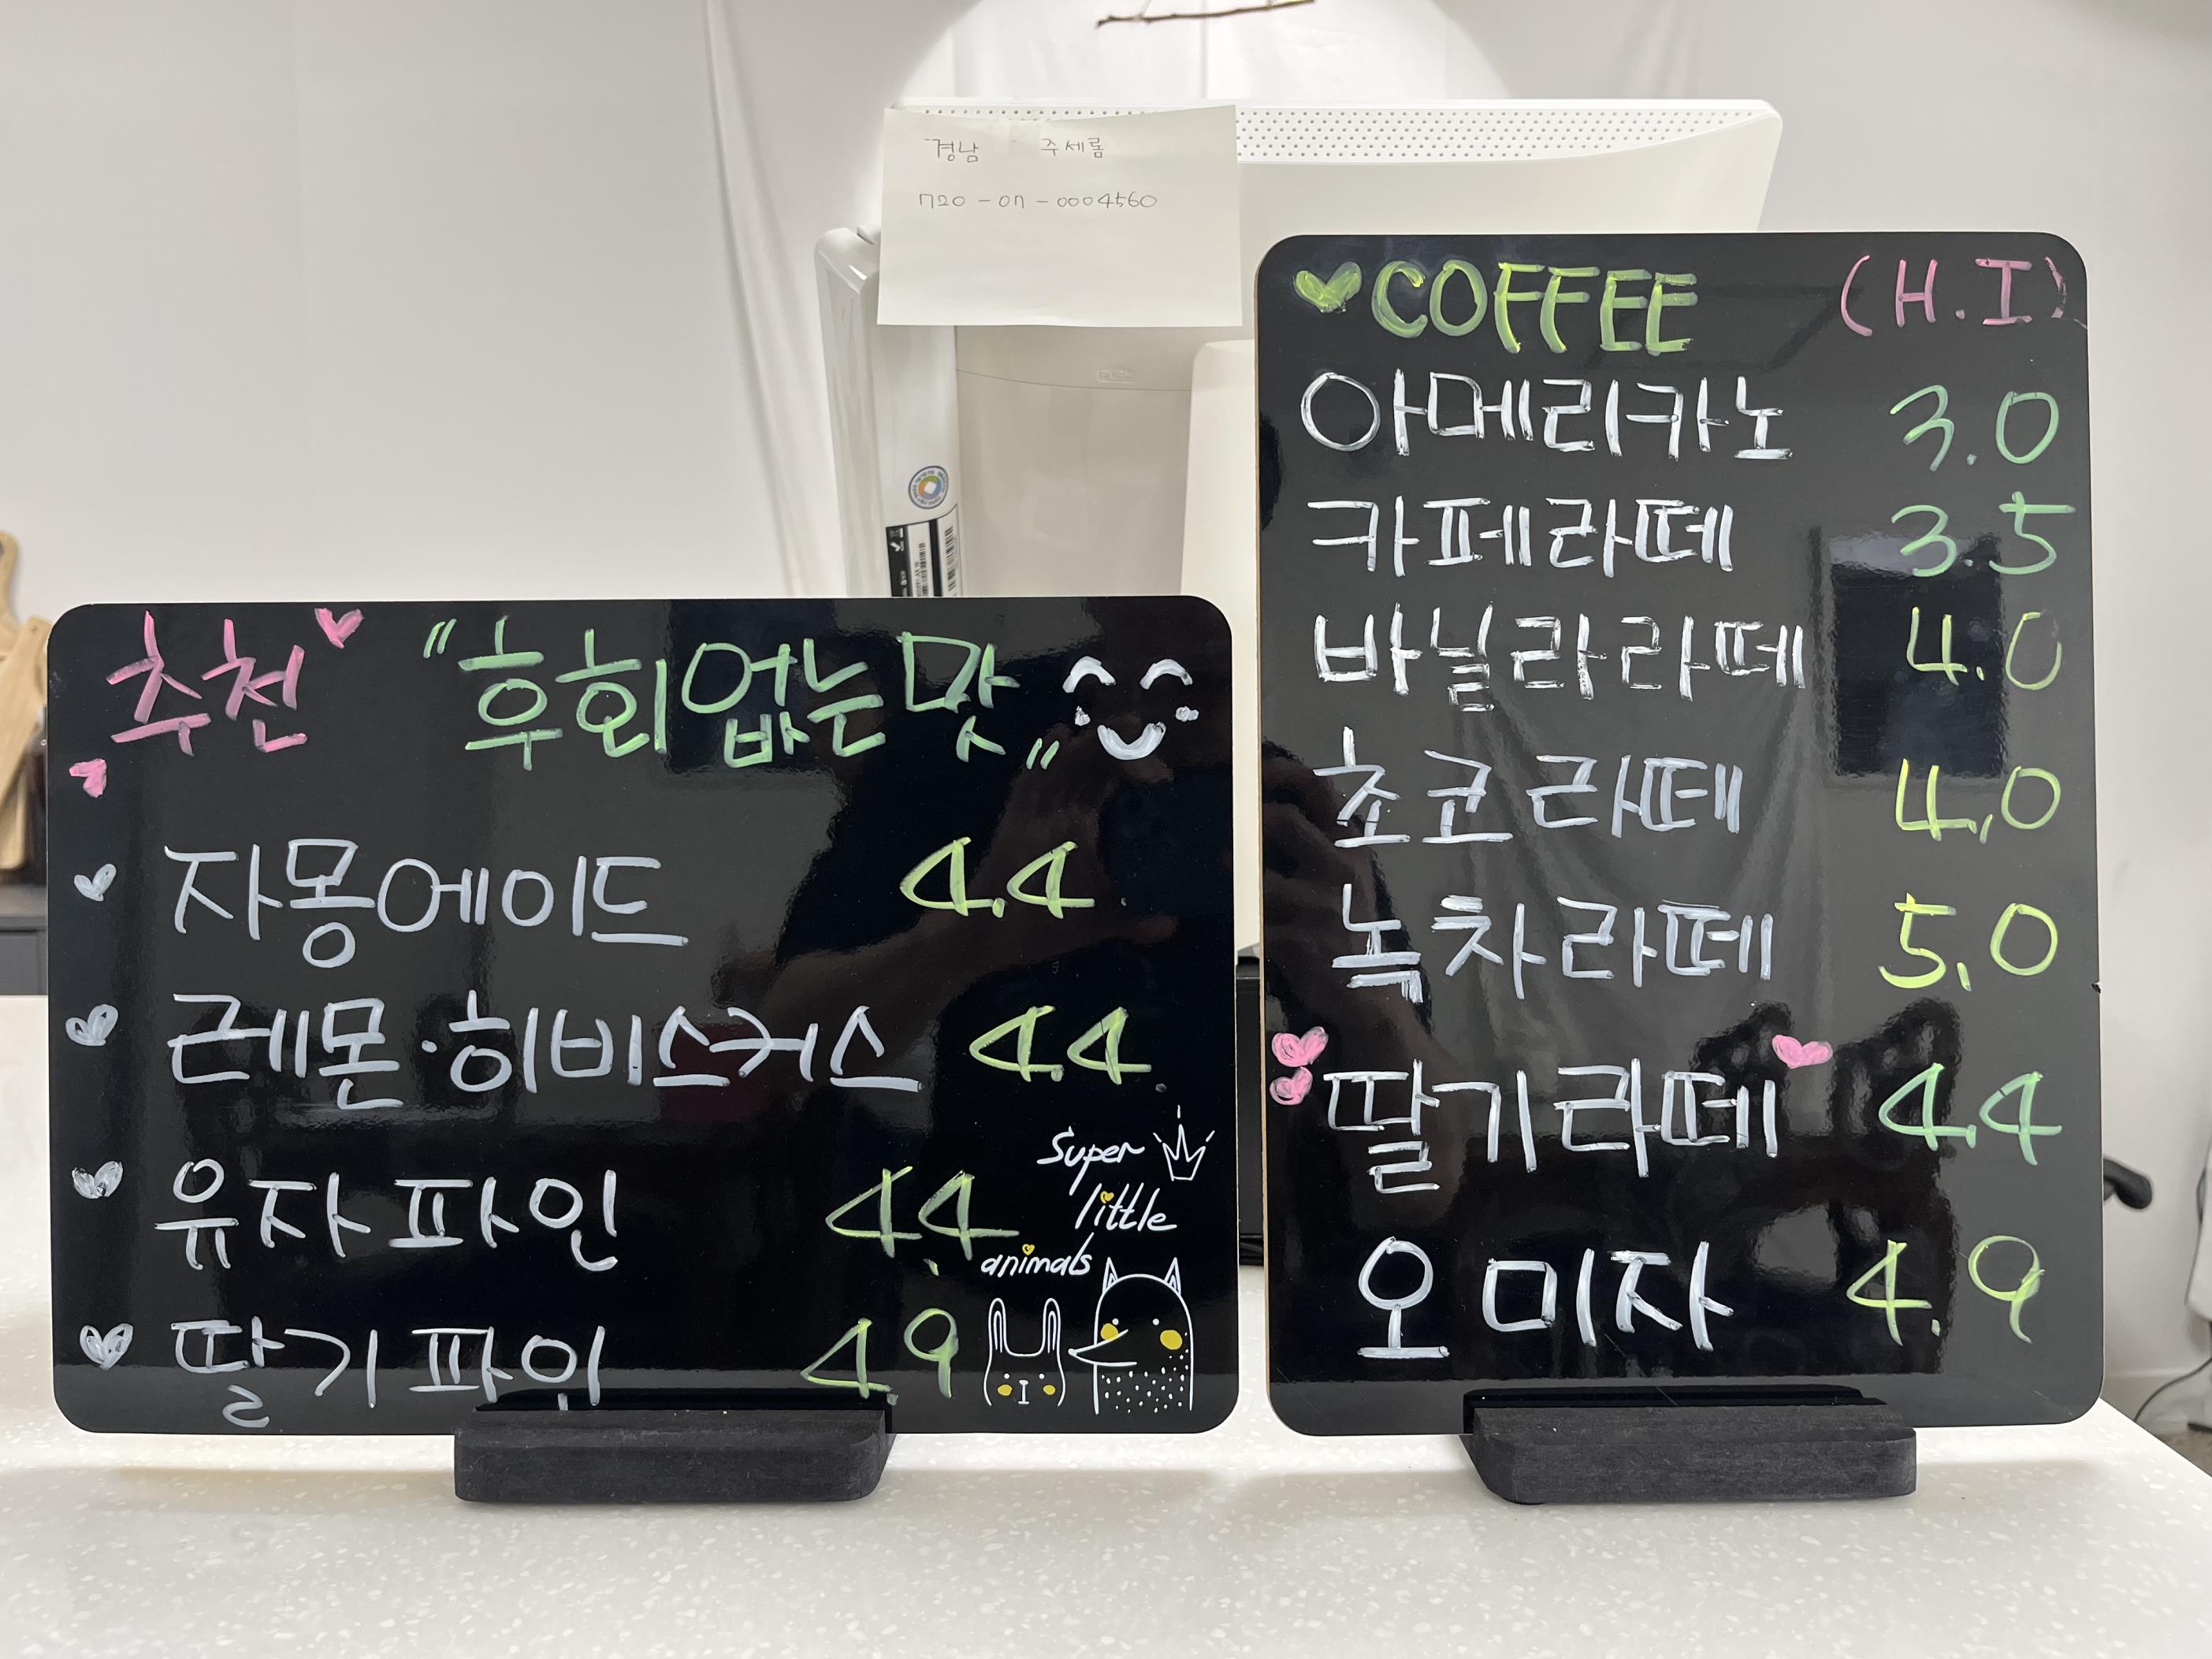 경남 주세롬
720-07-0004560
추천 "후회없는맛"
자몽에이드 4.4
레몬·히비스커스 4.4
유자파인 4.4
딸기파인 4.9
Super
little
animals
COFFEE (H.I)
아메리카노 3.0
카페라떼 3.5
바닐라라떼 4.0
초코라떼 4,0
녹차라떼 5,0
딸기라떼 4.4
오미자 4.9